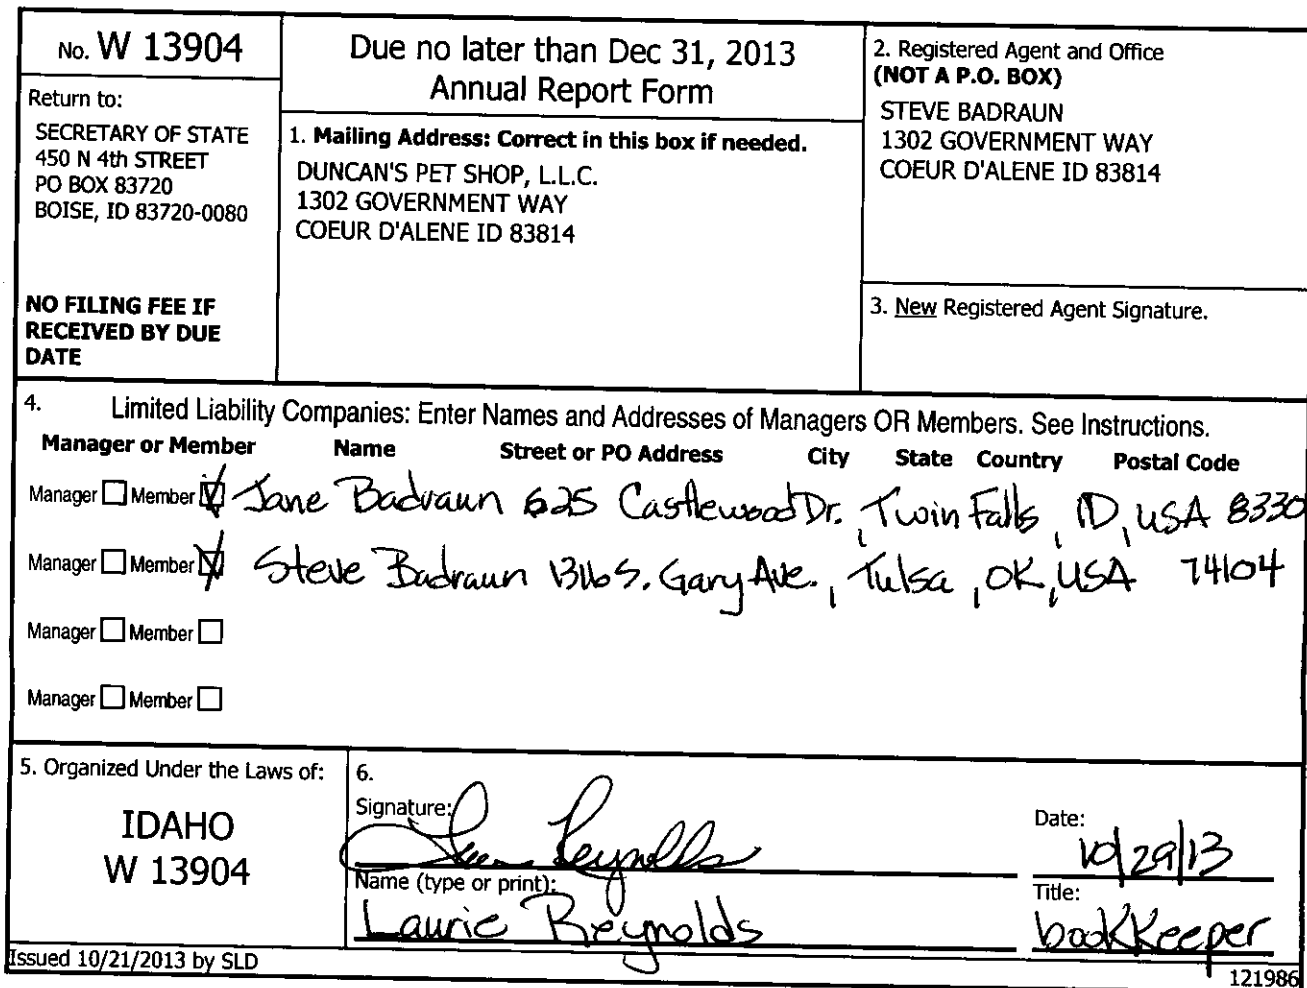 No. W 13904
Return to:
SECRETARY OF STATE
450 N 4th STREET
PO BOX 83720
BOISE, ID 83720-0080
NO FILING FEE IF
RECEIVED BY DUE
DATE
Due no later than Dec 31, 2013
Annual Report Form
1. Mailing Address: Correct in this box if needed.
DUNCAN'S PET SHOP, L.L.C.
1302 GOVERNMENT WAY
COEUR D'ALENE ID 83814
2. Registered Agent and Office
(NOT A P.O. BOX)
STEVE BADRAUN
1302 GOVERNMENT WAY
COEUR D'ALENE ID 83814
3. New Registered Agent Signature.
4. Limited Liability Companies: Enter Names and Addresses of Managers OR Members. See Instructions.
Manager or Member Name Street or PO Address City State Country Postal Code
Manager Member Jane Badraun 625 Castlewood Dr., Twin Falls, ID, USA 8330
Manager Member Steve Badraun 1316 S. Gary Ave., Tulsa, OK, USA 74104
Manager Member
Manager Member
5. Organized Under the Laws of:
IDAHO
W 13904
6.
Signature: Laurie Reynolds
Date: 10/29/13
Name (type or print): Laurie Reynolds
Title: bookkeeper
Issued 10/21/2013 by SLD
121986